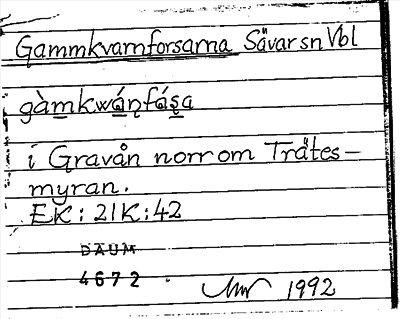 Gammkvarnforsarna Sävar sn Vbl
gàmkwán̨fás̨a
i Gravån norr om Trätes-
myran.
EK: 21K:42
DAUM
4672
1992